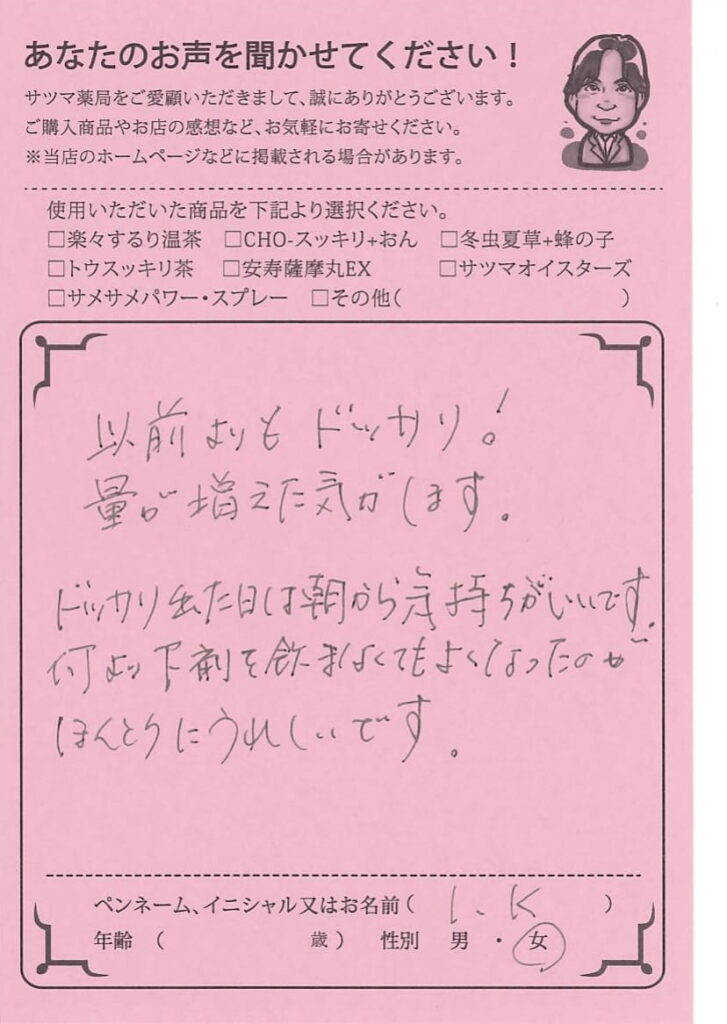 あなたのお声を聞かせてください！
サツマ薬局をご愛顧いただきまして、誠にありがとうございます。
ご購入商品やお店の感想など、お気軽にお寄せください。
※当店のホームページなどに掲載される場合があります。
使用いただいた商品を下記より選択ください。
□楽々するり温茶　□CHO-スッキリ+おん　□冬虫夏草+蜂の子
□トウスッキリ茶　□安寿薩摩丸EX　□サツマオイスターズ
□サメサメパワー・スプレー　□その他(　　　)
以前よりもドッサリ!
量が増えた気がします。
ドッサリ出た日は朝から気持ちがいいです。
何より下剤を飲まなくてもよくなったのが
ほんとうにうれしいです。
ペンネーム、イニシャル又はお名前( I.K )
年齢（　　　歳）　性別　男・女